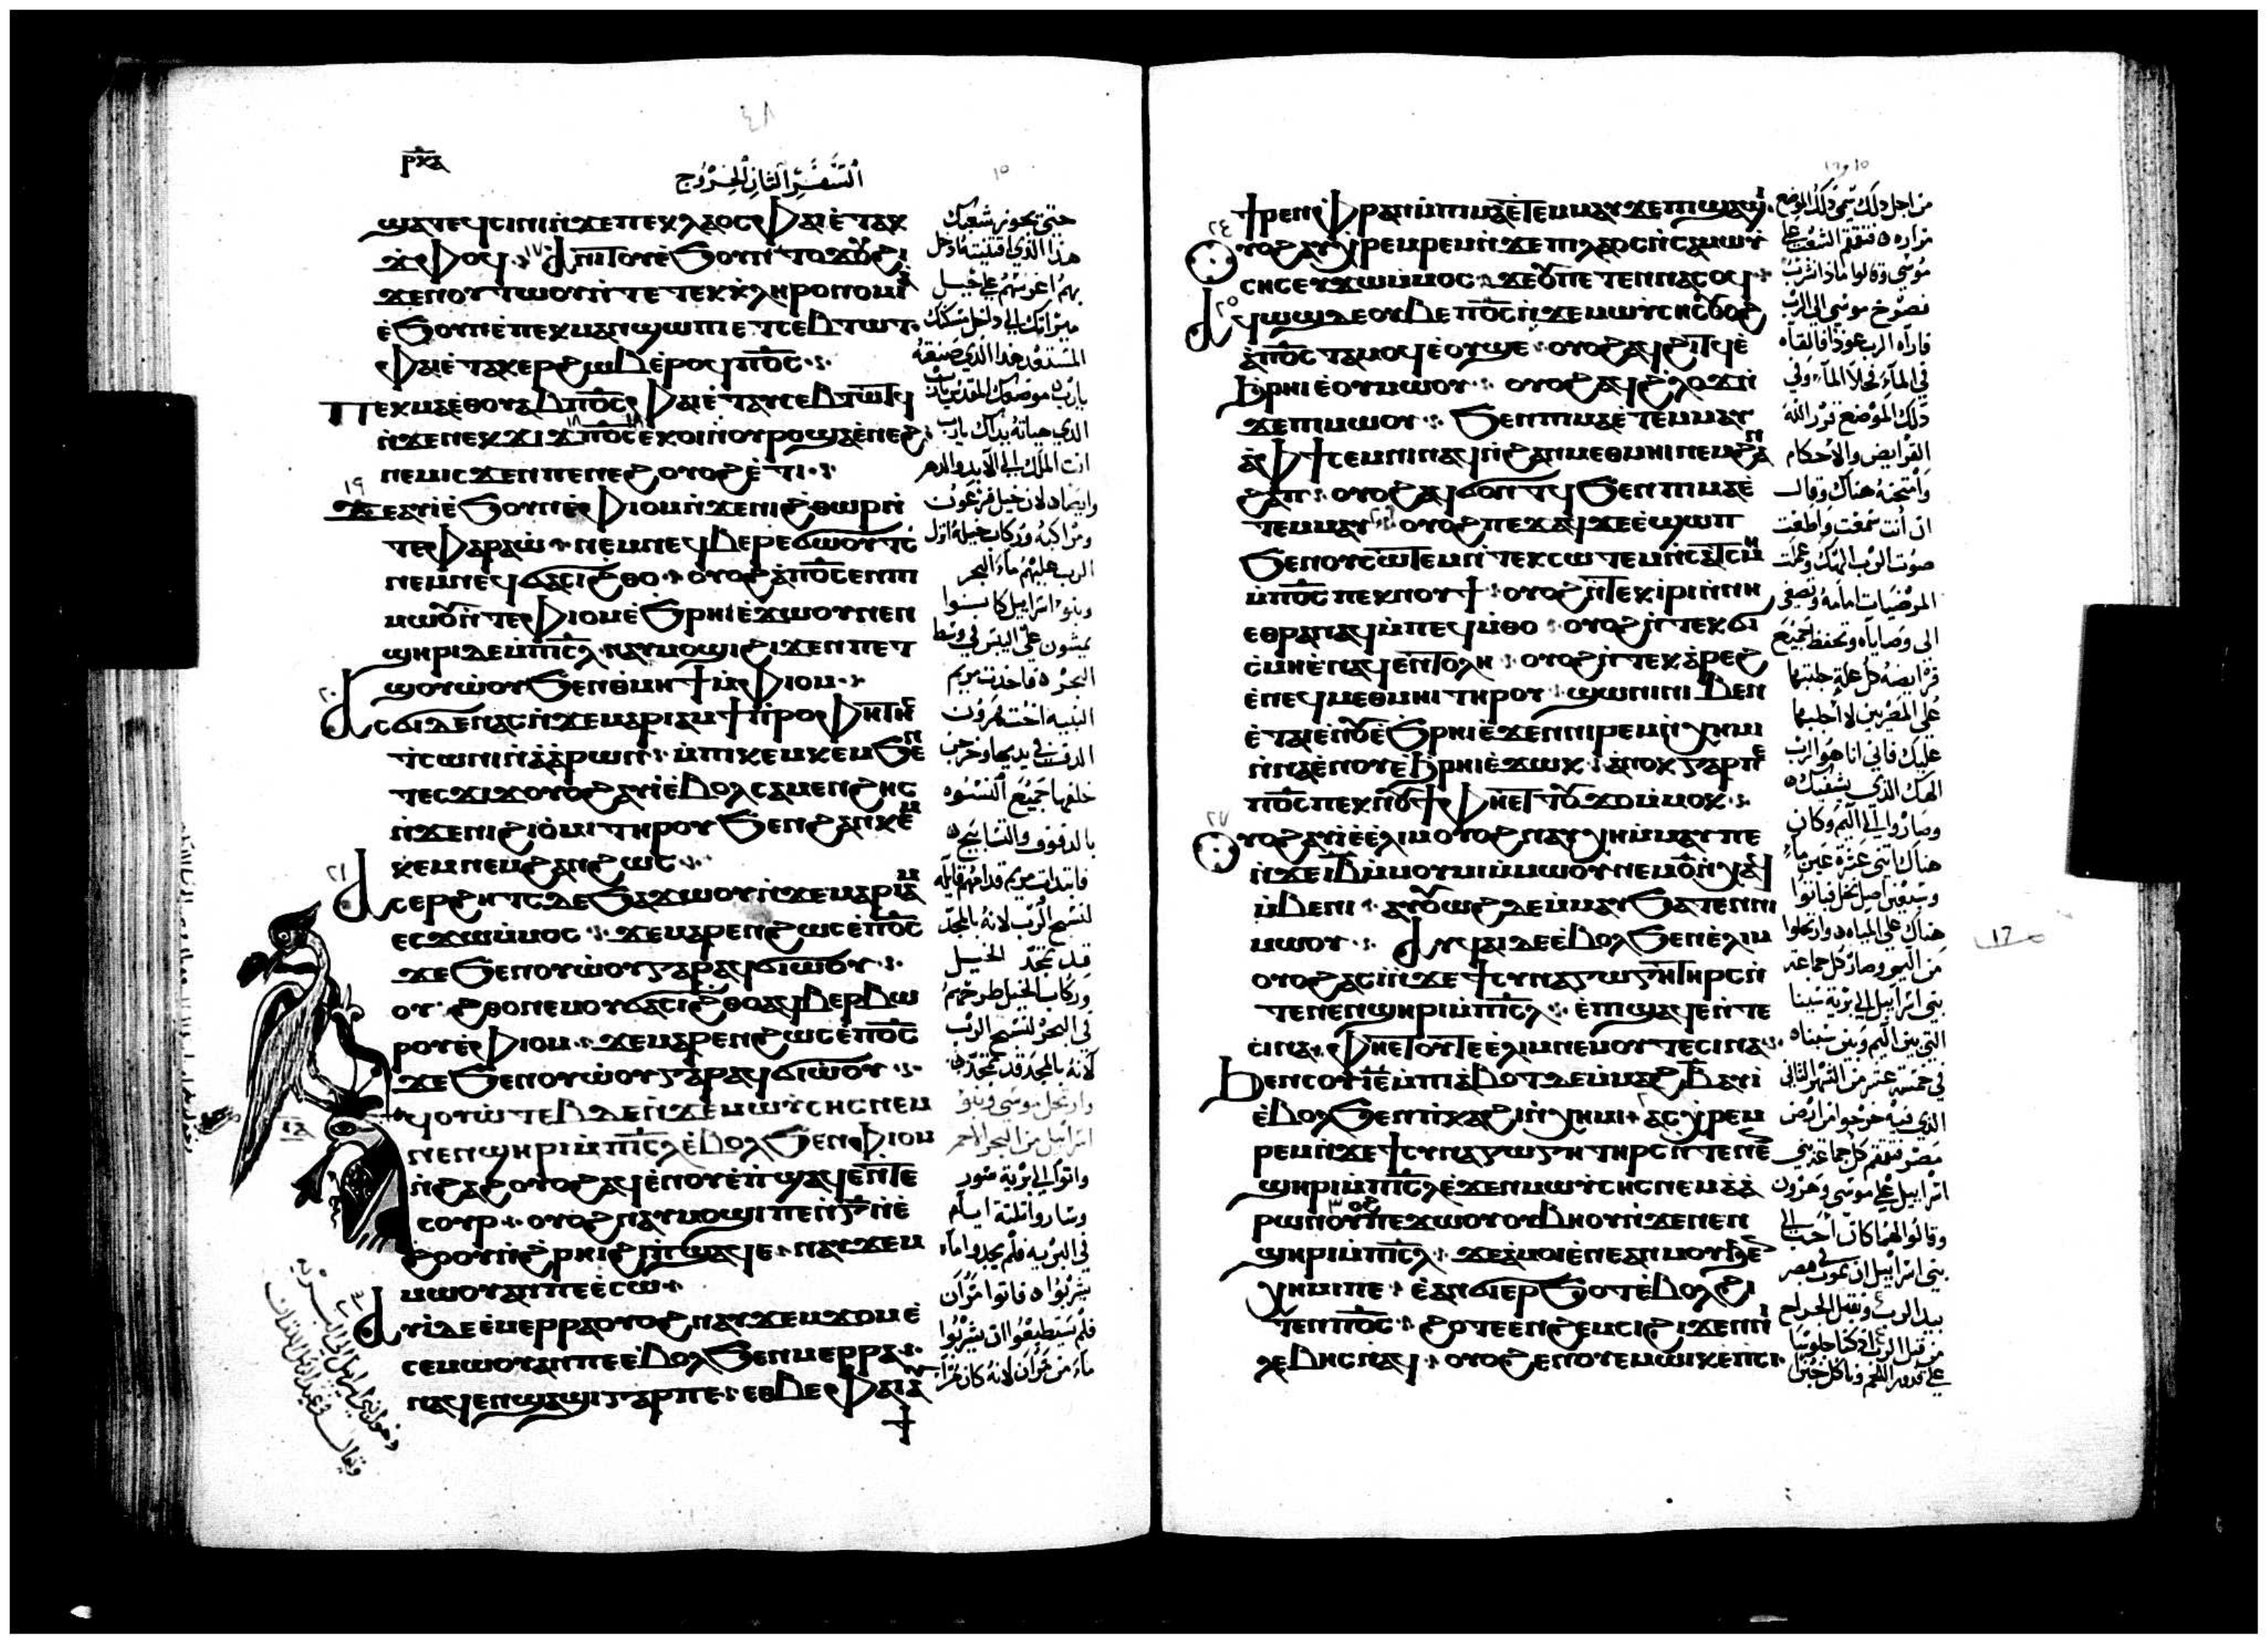 ⲣⲕⲇ
السفر الثاني الخروج
ϣⲁⲧⲉϥⲥⲓⲛⲓ ⲛ̀ϫⲉ ⲡⲉⲕⲗⲁⲟⲥ ⲫⲁⲓ ⲉ̀ⲧⲁⲕ
ϫ̀ⲫⲟϥ ⲁⲛⲓⲧⲟⲩ ⲉ̀ϧⲟⲩⲛ ⲧⲟϫⲟⲩ ϩⲓ
ϫⲉⲛ ⲟⲩⲧⲱⲟⲩ ⲛ̀ⲧⲉ ⲧⲉⲕⲕ̀ⲗⲏⲣⲟⲛⲟⲙⲓⲁ
ⲉ̀ϧⲟⲩⲛ ⲉ̀ⲡⲉⲕⲙⲁⲛ̀ϣⲱⲡⲓ ⲉⲧⲥⲉⲃⲧⲱⲧ
ⲫⲁⲓ ⲉ̀ⲧⲁⲕⲉⲣϩⲱⲃ ⲉ̀ⲣⲟϥ ⲡ⳪
ⲡⲉⲕⲙⲁ ⲉ̀ⲑⲟⲩⲁⲃ ⲡ⳪ ⲫⲁⲓ ⲉ̀ⲧⲁⲩⲥⲉⲃⲧⲱⲧϥ
ⲛ̀ϫⲉ ⲛⲉⲕϫⲓϫ ⲡ⳪ ⲉⲕⲟⲓ ⲛ̀ⲟⲩⲣⲟ ϣⲁ ⲉ̀ⲛⲉϩ
ⲛⲉⲙ ⲓⲥϫⲉⲛ ⲡ̀ⲉⲛⲉϩ ⲟⲩⲟϩ ⲉ̀ⲧⲓ
ϫⲉ ⲁⲩⲓ̀ ⲉ̀ϧⲟⲩⲛ ⲉ̀ⲫⲓⲟⲙ ⲛ̀ϫⲉ ⲛⲓϩ̀ⲑⲱⲣ ⲛ̀
ⲧⲉ ⲫⲁⲣⲁⲱ ⲛⲉⲙ ⲛⲉϥⲃⲉⲣⲉϭⲱⲟⲩⲧⲥ
ⲛⲉⲙ ⲛⲉϥϭⲁⲥⲓϩ̀ⲑⲟ ⲟⲩⲟϩ ⲁ̀ ⲡ⳪ ⲉⲛ ⲡⲓ
ⲙⲱⲟⲩ ⲛ̀ⲧⲉ ⲫⲓⲟⲙ ⲉ̀ϧⲣⲏⲓ ⲉ̀ϫⲱⲟⲩ ⲛⲉⲛ
ϣⲏⲣⲓ ⲇⲉ ⲙ̀ⲡⲓⲥ̅ⲗ̅ ⲛⲁⲩⲙⲟϣⲓ ϩⲓϫⲉⲛ ⲡⲉⲧ
ϣⲟⲩⲱ̀ⲟⲩ ϧⲉⲛ ⲑ̀ⲙⲏϯ ⲙ̀ⲫⲓⲟⲙ
ⲁⲥϭⲓ ⲇⲉ ⲛⲁⲥ ⲛ̀ϫⲉ ⲙⲁⲣⲓⲁⲙ ϯⲡ̀ⲣⲟⲫⲏⲧⲏⲥ
ⲧ̀ⲥⲱⲛⲓ ⲛ̀ⲁ̀ⲁ̀ⲣⲱⲛ ⲙ̀ⲡⲓⲕⲉⲙⲕⲉⲙ ϧⲉⲛ
ⲧⲉⲥϫⲓϫ ⲟⲩⲟϩ ⲁⲩⲓ̀ ⲉ̀ⲃⲟⲗ ⲥⲁⲙⲉⲛϩⲏⲥ
ⲛ̀ϫⲉ ⲛⲓϩⲓⲟ̀ⲙⲓ ⲧⲏⲣⲟⲩ ϧⲉⲛ ϩⲁⲛⲕⲉⲙ
ⲕⲉⲙ ⲛⲉⲙ ϩⲁⲛϩⲱⲥ
ⲁⲥⲉⲣϩⲏⲧⲥ ⲇⲉ ϧⲁϫⲱⲟⲩ ⲛ̀ϫⲉ ⲙⲁⲣⲓⲁⲙ
ⲉⲥϫⲱ ⲙ̀ⲙⲟⲥ ϫⲉ ⲙⲁⲣⲉⲛϩⲱⲥ ⲉ̀ⲡ⳪
ϫⲉ ϧⲉⲛ ⲟⲩⲱ̀ⲟⲩ ⲅⲁⲣ ⲁϥϭⲓⲱ̀ⲟⲩ
ⲟⲩϩ̀ⲑⲟ ⲛⲉⲙ ⲟⲩϭⲁⲥⲓϩ̀ⲑⲟ ⲁϥⲃⲉⲣⲃⲱ
ⲣⲟⲩ ⲉ̀ⲫⲓⲟⲙ ϫⲉ ⲙⲁⲣⲉⲛϩⲱⲥ ⲉ̀ⲡ⳪
ϫⲉ ϧⲉⲛ ⲟⲩⲱ̀ⲟⲩ ⲅⲁⲣ ⲁϥϭⲓⲱ̀ⲟⲩ
ⲁϥⲟⲩⲱ̀ⲧⲉⲃ ⲇⲉ ⲛ̀ϫⲉ ⲙⲱⲩ̀ⲥⲏⲥ ⲛⲉⲙ
ⲛⲉⲛϣⲏⲣⲓ ⲙ̀ⲡⲓⲥ̅ⲗ̅ ⲉ̀ⲃⲟⲗ ϧⲉⲛ ⲫⲓⲟⲙ
ⲛ̀ϩⲁϩ ⲟⲩⲟϩ ⲁϥⲉ̀ⲛⲟⲩ ⲉ̀ⲡ̀ϣⲁϥⲉ ⲛ̀ⲧⲉ
ⲥⲟⲩⲣ ⲟⲩⲟϩ ⲛⲁⲩⲙⲟϣⲓ ⲡⲉ ⲛ̀ⲅ̅ ⲛ̀ⲉ̀
ϩⲟⲟⲩ ⲛ̀ϩ̀ⲣⲏⲓ ϩⲓ ⲡ̀ϣⲁϥⲉ ⲛⲁⲩϫⲉⲙ
ⲙⲱⲟⲩ ⲁⲛ ⲡⲉ ⲉ̀ⲥⲱ
ⲁⲩⲓ̀ ⲇⲉ ⲉ̀ⲙⲉⲣⲣⲁ ⲟⲩⲟϩ ⲛⲁⲩϫⲉⲙϫⲟⲙ ⲉ̀
ⲥⲉⲙⲱⲟⲩ ⲁⲛ ⲡⲉ ⲉ̀ⲃⲟⲗ ϧⲉⲛ ⲙⲉⲣⲣⲁ
ⲛⲁϥⲉⲛϣⲁϣⲓ ⲅⲁⲣ ⲡⲉ ⲉⲑⲃⲉ ⲫⲁⲓ ⲁⲩ
ϯ
حتى يجوز شعبك
هذا الذي اقتنيته ادخل
بهم اغرسهم على جبل
ميراثك الى داخل مسكنك
المستعد هذا الذي صنعته
يارب موضعك المقدس يارب
الذي هيأته يداك يارب
انت الملك الى الابد والدهر
وايضاً لان خيل فرعون
الرب عليهم ماء البحر
وبنو اسراييل كانوا
يمشون على اليبس في وسط
البحر فاخذت مريم
النبيه اخت هرون
الدف في يديها وخرجن
خلفها جميع النسوه
بالدفوف والتسابيح
فابتدات مريم قدامهم قايله
لنسبح الرب لانه بالمجد
قد تمجد الخيل
وركاب الخيل طرحهم
في البحر لنسبح الرب
لانه بالمجد قد تمجد
وارتحل موسى وبنو
اسراييل من البحر الاحمر
واتوا الى برية سور
وساروا ثلثة ايام
في البريه فلم يجدوا ماء
يشربوا فاتوا مران
فلم يستطيعوا ان يشربوا
ماء من مران لانه كان مراً
ϯⲣⲉⲛ ⲫ̀ⲣⲁⲛ ⲙ̀ⲡⲓⲙⲁ ⲉ̀ⲧⲉⲙⲙⲁⲩ ϫⲉ ⲡⲓϣⲁϣⲓ
ⲟⲩⲟϩ ⲁϥⲭ̀ⲣⲉⲙⲣⲉⲙ ⲛ̀ϫⲉ ⲡⲓⲗⲁⲟⲥ ⲛ̀ⲥⲁ ⲙⲱⲩ̀
ⲥⲏⲥ ⲉⲩϫⲱ ⲙ̀ⲙⲟⲥ ϫⲉ ⲟⲩ ⲡⲉ ⲧⲉⲛⲛⲁⲥⲟϥ
ⲁϥⲱϣ ⲇⲉ ⲟⲩⲃⲉ ⲡ⳪ ⲛ̀ϫⲉ ⲙⲱⲩ̀ⲥⲏⲥ ⲟⲩⲟϩ
ⲁ̀ ⲡ⳪ ⲧⲁⲙⲟϥ ⲉ̀ⲟⲩϣⲉ ⲟⲩⲟϩ ⲁϥϩⲓⲧϥ ⲉ̀
ϧ̀ⲣⲏⲓ ⲉ̀ⲟⲩⲙⲱⲟⲩ ⲟⲩⲟϩ ⲁϥϩ̀ⲗⲟϫ ⲛ̀
ϫⲉ ⲡⲓⲙⲱⲟⲩ ϧⲉⲛ ⲡⲓⲙⲁ ⲉ̀ⲧⲉⲙⲙⲁⲩ
ⲁ̀ ⲫϯ ⲥⲉⲙⲛⲓ ⲛⲁϥ ⲛ̀ϩⲁⲛⲙⲉⲑⲙⲏⲓ ⲛⲉⲙ ϩⲁⲛ
ϩⲁⲡ ⲟⲩⲟϩ ⲁϥϭⲟⲛⲧϥ ϧⲉⲛ ⲡⲓⲙⲁ ⲉ̀
ⲧⲉⲙⲙⲁⲩ ⲟⲩⲟϩ ⲡⲉϫⲁϥ ϫⲉ ⲉ̀ϣⲱⲡ
ϧⲉⲛ ⲟⲩⲥⲱⲧⲉⲙ ⲛ̀ⲧⲉⲕⲥⲱⲧⲉⲙ ⲛ̀ⲥⲁ ⲧ̀ⲥⲙⲏ
ⲙ̀ⲡ⳪ ⲡⲉⲕⲛⲟⲩϯ ⲟⲩⲟϩ ⲛ̀ⲧⲉⲕⲓ̀ⲣⲓ ⲛ̀ⲛⲏ
ⲉⲑⲣⲁⲛⲁϥ ⲙ̀ⲡⲉϥⲙ̀ⲑⲟ ⲟⲩⲟϩ ⲛ̀ⲧⲉⲕϭⲓ
ⲥ̀ⲙⲏ ⲉ̀ⲛⲁϥⲉⲛⲧⲟⲗⲏ ⲟⲩⲟϩ ⲛ̀ⲧⲉⲕⲁ̀ⲣⲉϩ
ⲉ̀ⲛⲉϥⲙⲉⲑⲙⲏⲓ ⲧⲏⲣⲟⲩ ϣⲱⲛⲓ ⲛⲓⲃⲉⲛ
ⲉ̀ⲧⲁⲓⲉ̀ⲛⲟⲩ ⲉ̀ϧⲣⲏⲓ ⲉ̀ϫⲉⲛ ⲛⲓⲣⲉⲙⲛ̀ⲭⲏⲙⲓ
ⲛ̀ⲛⲁⲉ̀ⲛⲟⲩ ⲉ̀ϧ̀ⲣⲏⲓ ⲉ̀ϫⲱⲕ ⲁⲛⲟⲕ ⲅⲁⲣ ⲡⲉ
ⲡ⳪ ⲡⲉⲕⲛⲟⲩϯ ⲫⲏⲉⲧⲧⲟⲩϫⲟ ⲙ̀ⲙⲟⲕ
ⲟⲩⲟϩ ⲁⲩⲓ̀ ⲉ̀ⲉ̀ⲗⲓⲙ ⲟⲩⲟϩ ⲛⲁⲩⲭⲏ ⲙ̀ⲙⲁⲩ ⲡⲉ
ⲛ̀ϫⲉ ⲓ̅ⲃ̅ ⲙ̀ⲙⲟⲩⲙⲓ ⲙ̀ⲙⲱⲟⲩ ⲛⲉⲙ ⲟ̅ ⲛ̀ⲭⲁϥ
ⲙ̀ⲃⲉⲛⲓ ⲁⲩⲟⲩⲱϩ ⲇⲉ ⲙ̀ⲙⲁⲩ ϧⲁⲧⲉⲛ ⲛⲓ
ⲙⲱⲟⲩ ⲁⲩϥⲁⲓ ⲇⲉ ⲉ̀ⲃⲟⲗ ϧⲉⲛ ⲉ̀ⲗⲓⲙ
ⲟⲩⲟϩ ⲁⲥⲓ̀ ⲛ̀ϫⲉ ϯⲥⲩⲛⲁⲅⲱⲅⲏ ⲧⲏⲣⲥ ⲛ̀
ⲧⲉ ⲛⲉⲛϣⲏⲣⲓ ⲙ̀ⲡⲓⲥ̅ⲗ̅ ⲉ̀ⲡ̀ϣⲁϥⲉ ⲛ̀ⲧⲉ
ⲥⲓⲛⲁ ⲫⲏⲉⲧⲟⲩⲧⲉ ⲉ̀ⲗⲓⲙ ⲛⲉⲙ ⲟⲩⲧⲉ ⲥⲓⲛⲁ
ϧⲉⲛ ⲥⲟⲩ ⲓ̅ⲉ̅ ⲙ̀ⲡⲓⲁ̀ⲃⲟⲧ ⲇⲉ ⲙ̀ⲙⲁϩⲃ̅ ⲁⲩⲓ̀
ⲉ̀ⲃⲟⲗ ϧⲉⲛ ⲡ̀ⲕⲁϩⲓ ⲛ̀ⲭⲏⲙⲓ ⲁⲥⲭ̀ⲣⲉⲙ
ⲣⲉⲙ ⲛ̀ϫⲉ ϯⲥⲩⲛⲁⲅⲱⲅⲏ ⲧⲏⲣⲥ ⲛ̀ⲧⲉ ⲛⲉⲛ
ϣⲏⲣⲓ ⲙ̀ⲡⲓⲥ̅ⲗ̅ ⲉ̀ϫⲉⲛ ⲙⲱⲩ̀ⲥⲏⲥ ⲛⲉⲙ ⲁ̀ⲁ̀
ⲣⲱⲛ ⲟⲩⲟϩ ⲡⲉϫⲱⲟⲩ ⲟⲩⲃⲏⲟⲩ ⲛ̀ϫⲉ ⲛⲉⲛ
ϣⲏⲣⲓ ⲙ̀ⲡⲓⲥ̅ⲗ̅ ϫⲉ ⲁ̀ⲙⲟⲓ ⲉ̀ⲛⲉ ⲁⲛⲙⲟⲩ ϧⲉⲛ
ⲭⲏⲙⲓ ⲡⲉ ⲉ̀ⲁⲛϭⲓ ⲉⲣϧⲟⲧ ⲉ̀ⲃⲟⲗ ϩⲓ
ⲧⲉⲛ ⲡ⳪ ϩⲟⲧⲉ ⲉⲛϩⲉⲙⲥⲓ ϩⲓϫⲉⲛ ⲛⲓ
ⲗⲉⲃⲏⲥ ⲛ̀ⲁϥ ⲟⲩⲟϩ ⲉⲛⲟⲩⲉⲙ ⲱⲓⲕ ⲉⲛⲥⲓ
من اجل ذلك سمي ذلك الموضع
مراره فتقمقم الشعب على
موسى وقالوا ماذا نشرب
فصرخ موسى الى الرب
فاراه الرب عوداً فالقاه
في الماء فحلا الماء وفي
ذلك الموضع قرر الله
الفرايض والاحكام
وامتحنه هناك وقال
ان انت سمعت واطعت
صوت الرب الهك وعملت
المرضيات امامه وتصغى
الى وصاياه وتحفظ جميع
فرايضه كل علة جلبتها
على المصريين لا اجلبها
عليك فاني انا هو الرب
الهك الذي يشفيك
وصاروا الى اليم وكان
هناك اثنى عشرة عين ماء
وسبعين اصل نخل فباتوا
هناك على المياه وارتحلوا
من اليم وصار كل جماعة
بني اسراييل الى برية سينا
التي بين اليم وبين سيناء
في خمسة عشر من الشهر الثاني
الذي فيه خرجوا من ارض
مصر تقمقم كل جماعة بني
اسراييل على موسى وهرون
وقالوا لهما كان احب الى
بني اسراييل ان نموت في مصر
من قبل الرب اذ كنا جلوساً
على قدور اللحم وناكل خبزاً